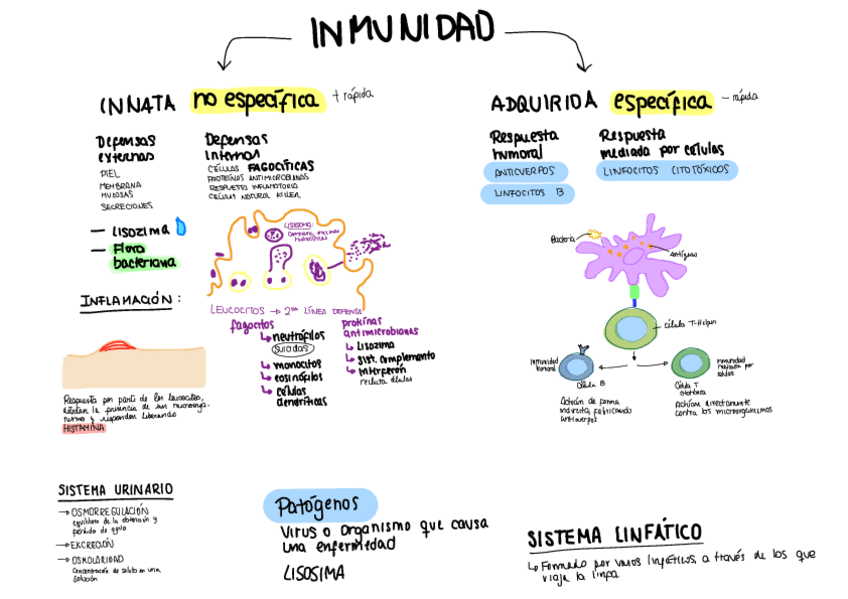 INMUNIDAD
INNATA no específica + rápida
Defensas
externas
PIEL
MEMBRANA
MUCOSAS
SECRECIONES
— Lisozima
— Flora
bacteriana
Defensas
Internas
CÉLULAS FAGOCÍTICAS
PROTEÍNAS ANTIMICROBIANAS
RESPUESTA INFLAMATORIA
CÉLULAS NATURAL KILLER
LISOSOMA:
INFLAMACIÓN:
Respuesta por parte de los leucocitos,
detectan la presencia de un microorga-
nismo y responden liberando
HISTAMINA
LEUCOCITOS → 2da LÍNEA DEFENSA
fagocitos
neutrófilos
suicidas
monocitos
eosinófilos
células
dendríticas
proteínas
antimicrobianas
Lisozima
Sist. complemento
Interferón
recluta células
ADQUIRIDA específica — rápida
Respuesta
humoral
ANTICUERPOS
LINFOCITOS B
Respuesta
mediada por células
LINFOCITOS CITOTÓXICOS
Bacteria
Antígeno
célula T-Helper
Inmunidad
humoral
Célula B
Actúan de forma
indirecta, fabricando
anticuerpos
Inmunidad
mediada por
células
Célula T
citotóxica
Actúan directamente
contra los microorganismos
SISTEMA URINARIO
→ OSMORREGULACIÓN
equilibrio de la obtención y
pérdida de agua
→ EXCRECIÓN
→ OSMOLARIDAD
Concentración de soluto en una
solución
Patógenos
Virus o organismo que causa
una enfermedad
LISOSIMA
SISTEMA LINFÁTICO
Formado por vasos linfáticos, a través de los que
viaja la linfa